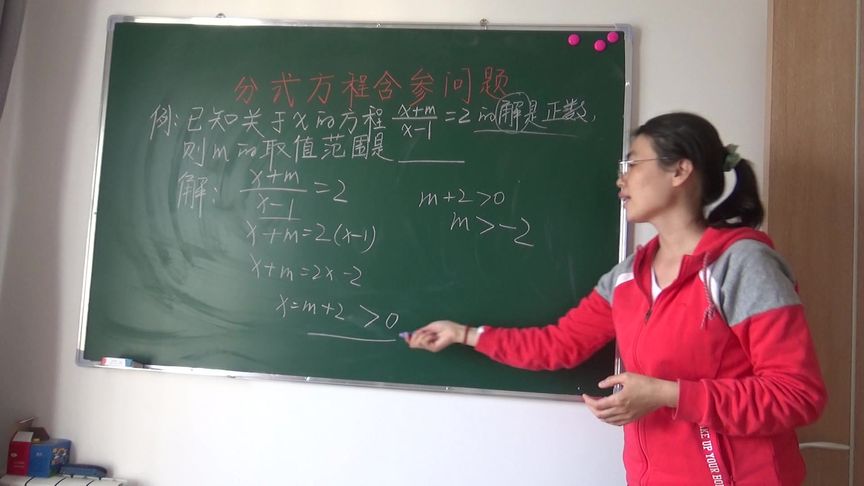 分式方程含参问题
例:已知关于x的方程 (x+m)/(x-1) =2的解是正数,
则m的取值范围是______
解: (x+m)/(x-1) =2
x+m=2(x-1)
x+m=2x-2
x=m+2>0
m+2>0
m>-2
WAKE UP YOUR BO